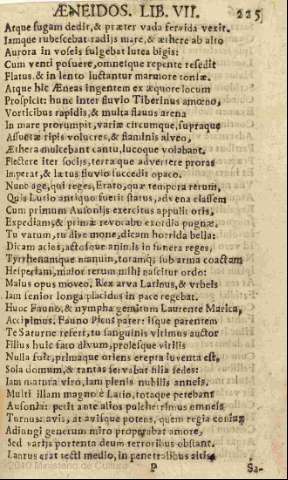 ÆNEIDOS. LIB. VII. 225
Atque fugam dedit, & præter vada fervida vexit.
Iamque rubescebat radijs mare, & æthere ab alto
Aurora in roseis fulgebat lutea bigis:
Cum venti posuere, omneique repente resedit
Flatus, & in lento luctantur marmore tonsæ.
Atque hîc Æneas ingentem ex æquore locum
Prospicit: hunc inter fluvio Tiberinus amœno,
Vorticibus rapidis, & multa flauus arena
In mare prorumpit, variæ circumque, supraque
Assuetæ ripis volucres, & fluminis alveo,
Æthera mulcebant cantu, lucoque volabant.
Flectere iter socijs, terraque advertere proras
Imperat, & lætus fluvio succedit opaco.
Nunc age, qui reges, Erato, quæ tempora rerum,
Quis Latio antiquo fuerit status, advena classem
Cum primum Ausonijs exercitus appulit oris,
Expediam; & primæ revocabo exordia pugnæ.
Tu vatum, tu diva mone, dicam horrida bella:
Dicam acies, actosque animis in funera reges,
Tyrrhenamque manum, totamq; sub arma coactam
Hesperiam, maior rerum mihi nascitur ordo:
Maius opus moveo. Rex arva Latinus, & vrbeis
Iam senior longa placidus in pace regebat.
Hunc Fauno, & nympha genitum Laurente Marica,
Accipimus. Fauno Picus pater: isque parentem
Te Saturne refert, tu sanguinis vltimus auctor
Filius huic fato divum, prolesque virilis
Nulla fuit, primaque oriens erepta iuventa est,
Sola domum, & tantas servabat filia sedes:
Iam matura viro, iam plenis nubilis anneis.
Multi illam magno è Latio, totaque petebant
Ausonia: petit ante alios pulcherrimus omneis
Turnus: avis, atavisque potens, quem regia coniux
Adiungi generum miro properabat amore,
Sed varijs portenta deum terroribus obstant.
Laurus erat tecti medio, in penetralibus altis,
P Sa-